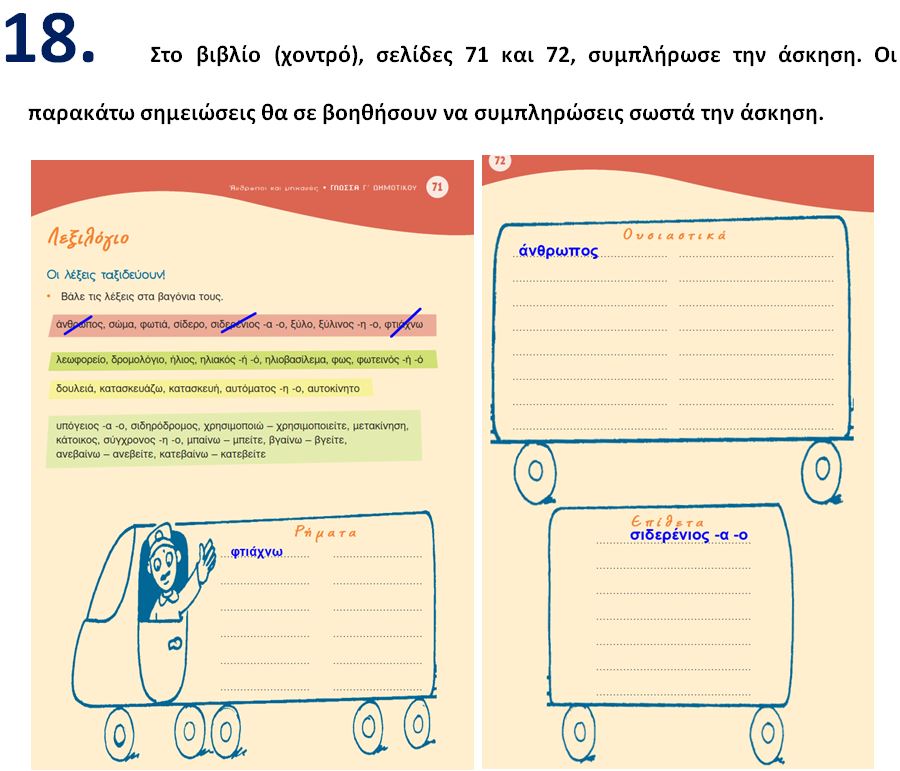 18. Στο βιβλίο (χοντρό), σελίδες 71 και 72, συμπλήρωσε την άσκηση. Οι
παρακάτω σημειώσεις θα σε βοηθήσουν να συμπληρώσεις σωστά την άσκηση.
Άνθρωποι και μηχανές • ΓΛΩΣΣΑ Γ΄ ΔΗΜΟΤΙΚΟΥ 71
Λεξιλόγιο
Οι λέξεις ταξιδεύουν!
• Βάλε τις λέξεις στα βαγόνια τους.
άνθρωπος, σώμα, φωτιά, σίδερο, σιδερένιος -α -ο, ξύλο, ξύλινος -η -ο, φτιάχνω
λεωφορείο, δρομολόγιο, ήλιος, ηλιακός -ή -ό, ηλιοβασίλεμα, φως, φωτεινός -ή -ό
δουλειά, κατασκευάζω, κατασκευή, αυτόματος -η -ο, αυτοκίνητο
υπόγειος -α -ο, σιδηρόδρομος, χρησιμοποιώ – χρησιμοποιείτε, μετακίνηση,
κάτοικος, σύγχρονος -η -ο, μπαίνω – μπείτε, βγαίνω – βγείτε,
ανεβαίνω – ανεβείτε, κατεβαίνω – κατεβείτε
Ρήματα
φτιάχνω
72
Ουσιαστικά
άνθρωπος
Επίθετα
σιδερένιος -α -ο